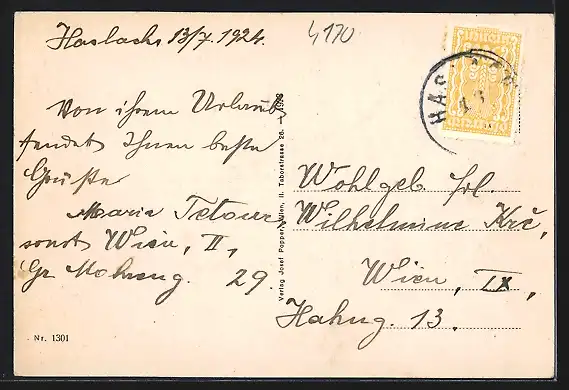 Haslach 13/7. 1924.
4170
Von ihrem Urlaub
sendet Ihnen beste
Grüße
Maria Tetour
sonst Wien, II,
Gr. Mohreng. 29.
Nr. 1301
Verlag Josef Popper, Wien, II. Taborstrasse 26.
HAS
Wohlgeb. Frl.
Wilhelmine Krč,
Wien, IX,
Hahng. 13.